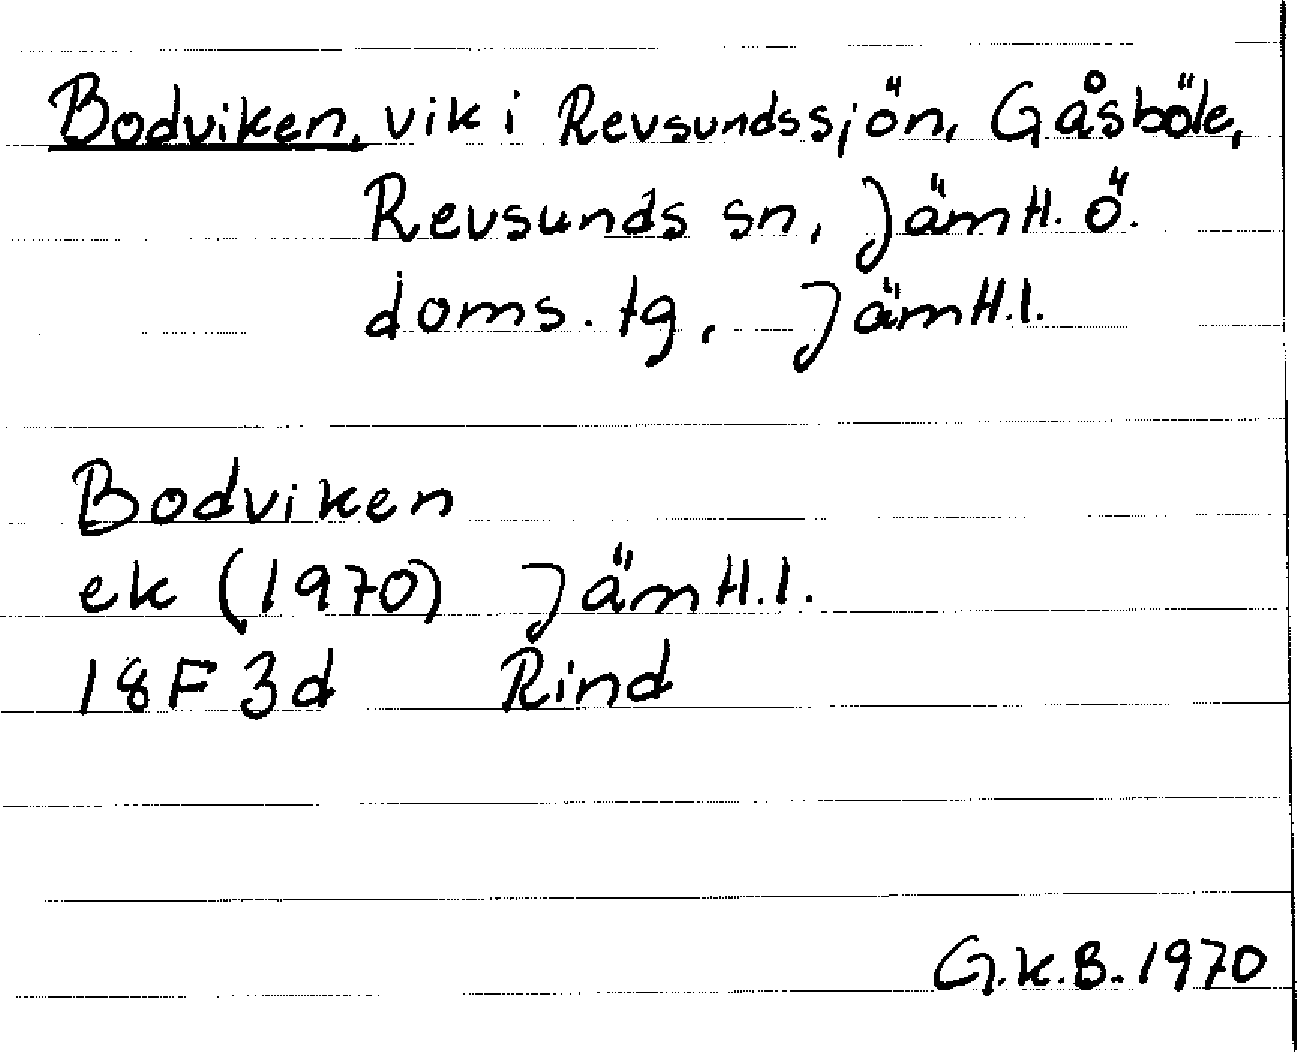 Bodviken, vik i Revsundssjön, Gåsböle,
Revsunds sn, Jämtl. ö.
doms. tg, Jämtl.l.
Bodviken
ek (1970) Jämtl.l.
18F 3d Rind
G.K.B. 1970